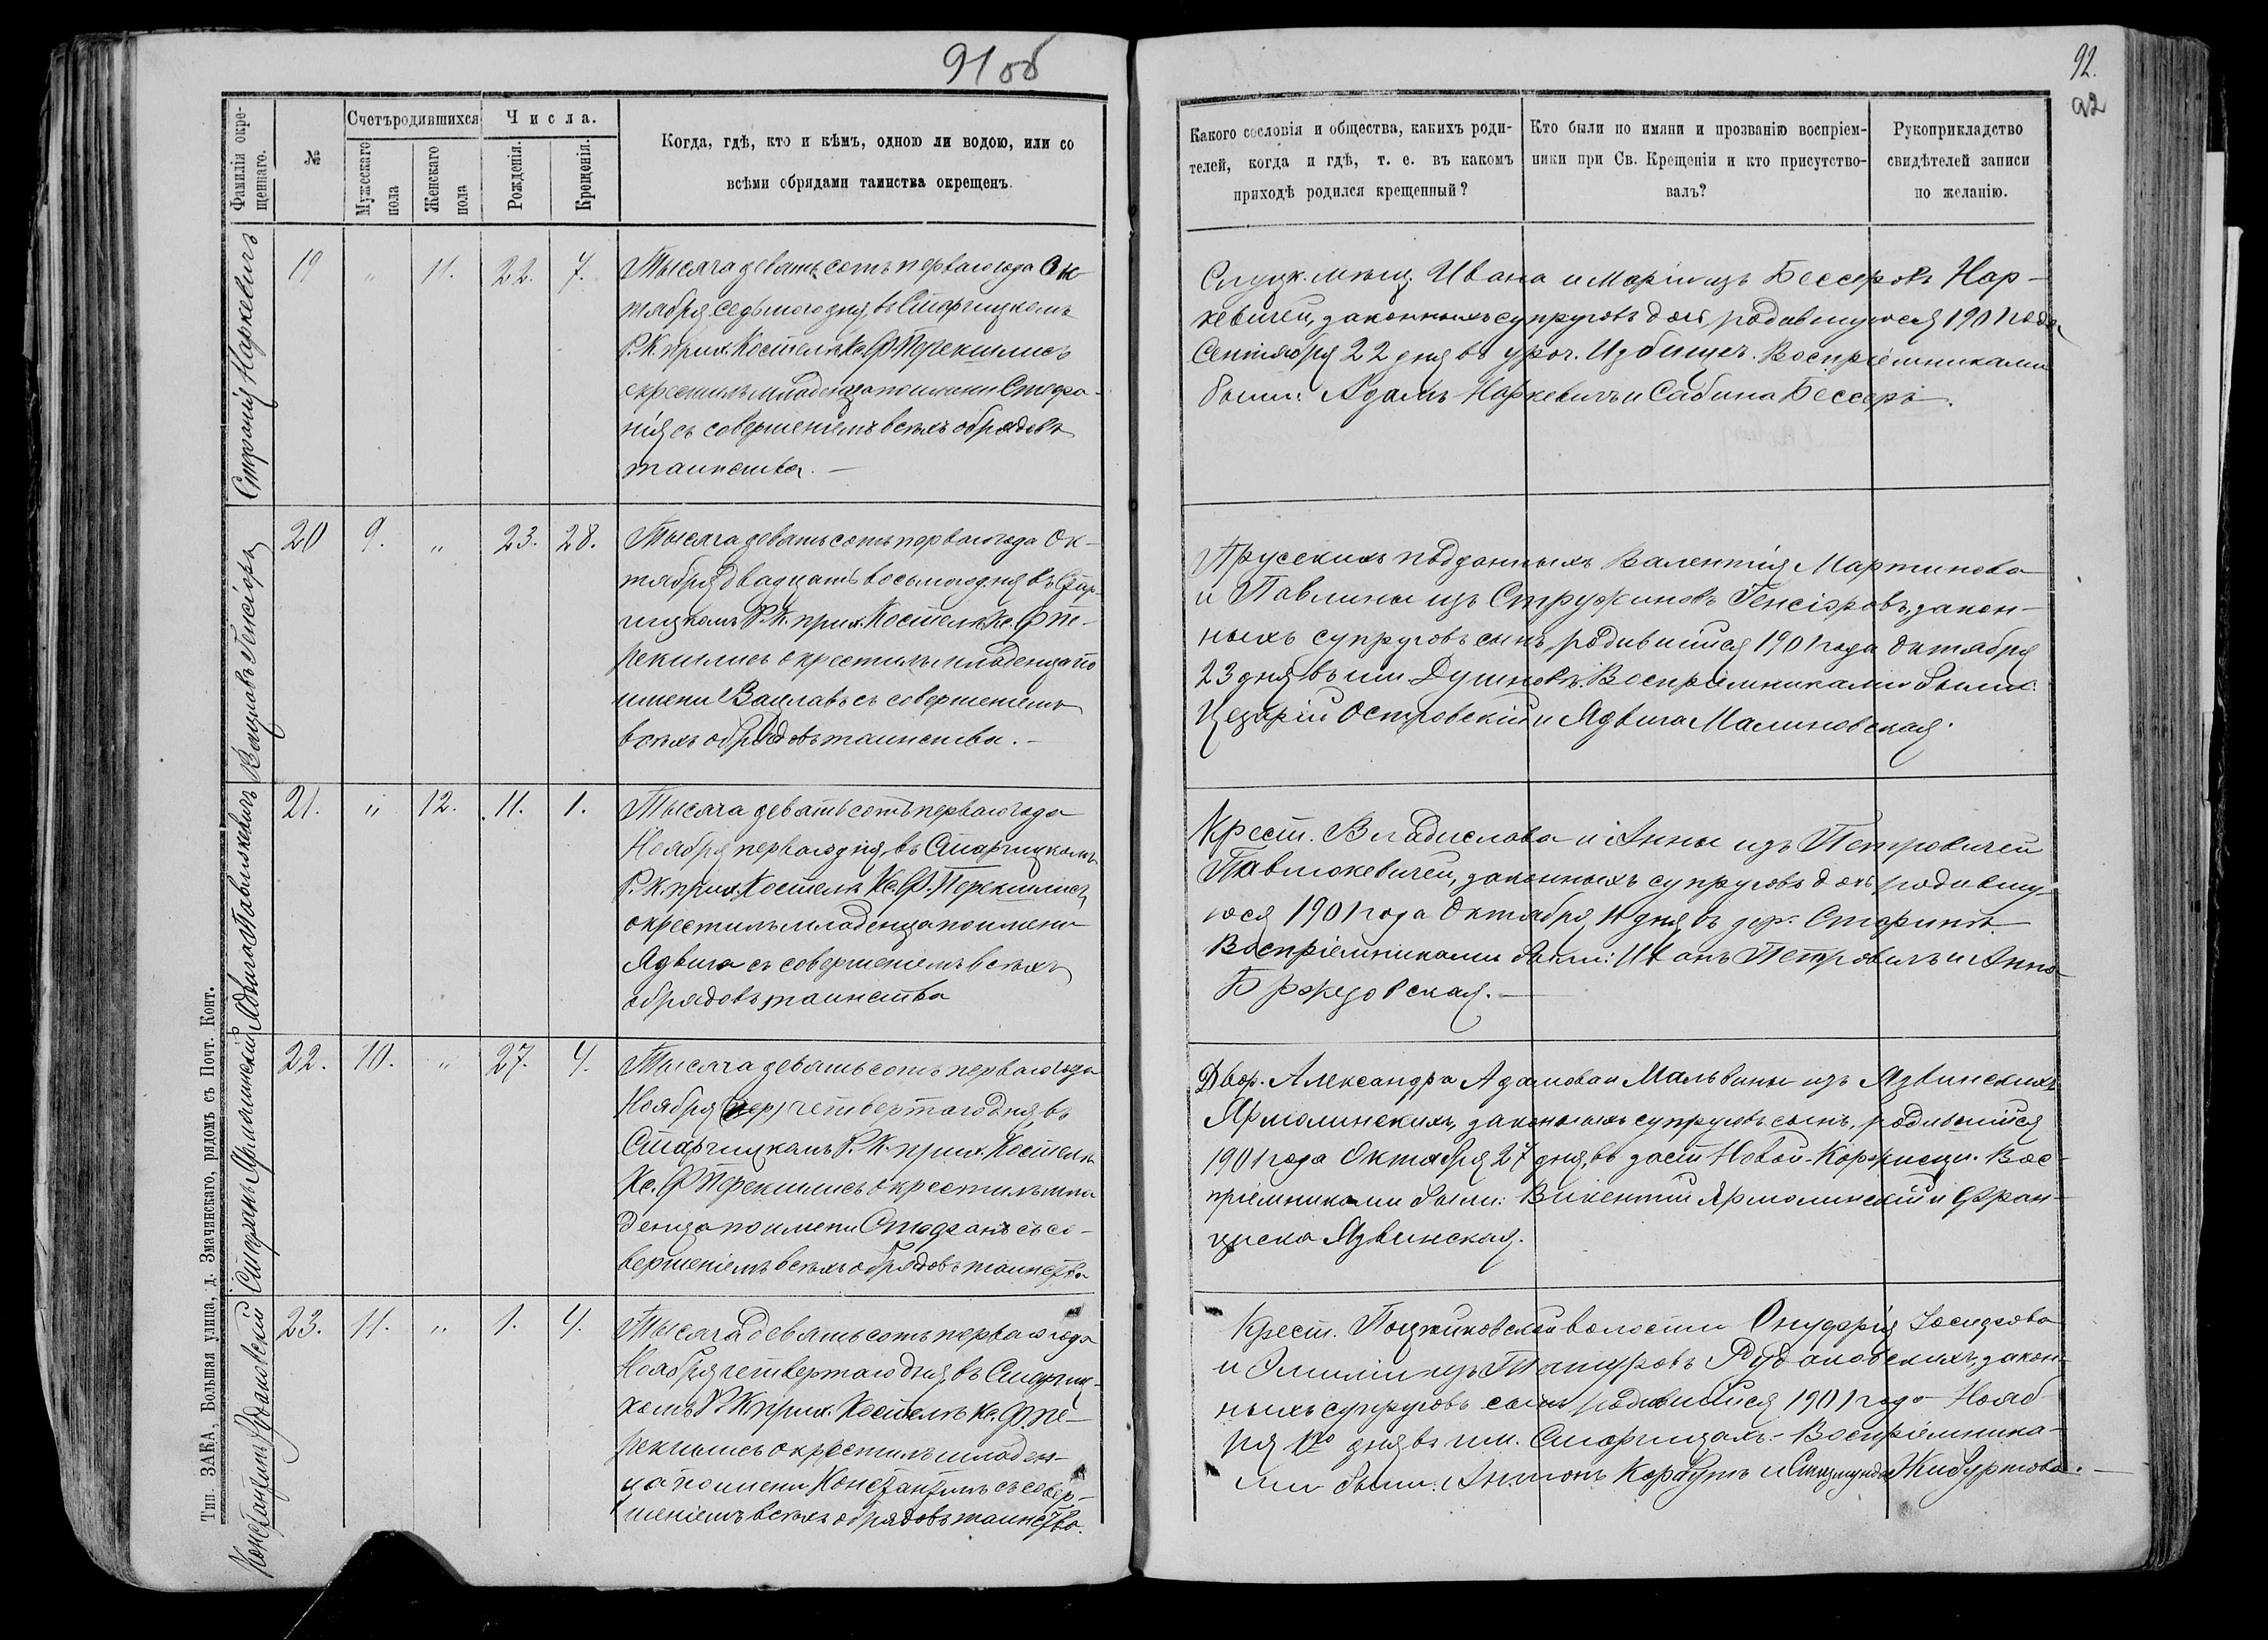 91 об
Фамилія окре-
щеннаго.
№
Счетъ родившихся
Мужескаго
пола
Женскаго
пола
Числа.
Рожденія.
Крещенія.
Когда, гдѣ, кто и кѣмъ, одною ли водою, или со
всѣми обрядами таинства окрещенъ.
Стефанія Наркевичъ
19 " 11. 22. 7.
Тысяча девятьсотъ перваго года Ок-
тября седьмого дня, въ Старчицкомъ
Р. К. прих. Костелѣ Кс. Ф. Перекшлисъ
окрестилъ младенца по имени Стефа-
нія съ совершеніемъ всѣхъ обрядовъ
таинства. —
Вацлавъ Генсіоръ
20 9. " 23. 28.
Тысяча девятьсотъ перваго года Ок-
тября двадцать восьмого дня въ Стар-
чицкомъ Р. К. прих. Костелѣ Кс. Ф. Пе-
рекшлисъ окрестилъ младенца по
имени Вацлавъ съ совершеніемъ
всѣхъ обрядовъ таинства. —
Ядвига Павлюкевичъ
21. " 12. 11. 1.
Тысяча девятьсотъ перваго года
Ноября перваго дня, въ Старчицкомъ
Р. К. прих. Костелѣ Кс. Ф. Перекшлисъ
окрестилъ младенца по имени
Ядвига съ совершеніемъ всѣхъ
обрядовъ таинства
Стефанъ Ярмолинскій
22. 10. " 27. 4.
Тысяча девятьсотъ перваго года
Ноября (пер) четвертаго дня, въ
Старчицкомъ Р. К. прих. Костелѣ
Кс. Ф. Перекшлисъ окрестилъ мла
денца по имени Стефанъ съ со-
вершеніемъ всѣхъ обрядовъ таинства
Константинъ Рудаковскій
23. 11. " 1. 4.
Тысяча девятьсотъ перваго года
Ноября четвертаго дня, въ Старчиц-
комъ Р. К. прих. Костелѣ Кс. Ф. Пе-
рекшлисъ окрестилъ младен-
ца по имени Константинъ съ совер-
шеніемъ всѣхъ обрядовъ таинства.
Тип. ЗАКА, Большая улица, д. Значинскаго, рядомъ съ Почт. Конт.
92.
92
Какого сословія и общества, какихъ роди-
телей, когда и гдѣ, т. е. въ какомъ
приходѣ родился крещенный?
Кто были по имяни и прозванію воспріем-
ники при Св. Крещеніи и кто присутство-
валъ?
Рукоприкладство
свидѣтелей записи
по желанію.
Слуцк. мѣщ. Ивана и Маріи изъ Бессеровъ Нар-
кевичей, законныхъ супруговъ дочь, родившуюся 1901 года
Сентября 22 дня въ уроч. Избищѣ. Воспріемниками
были: Адамъ Наркевичъ и Сабина Бессеръ.
Прусскихъ подданныхъ Валентія Мартинова
и Павлины изъ Стружиновъ Генсіоровъ, закон-
ныхъ супруговъ сынъ, родившійся 1901 года Октября
23 дня въ им Душновѣ. Воспріемниками были:
Цезарій Островскій и Ядвига Малиновская.
Крест. Владислава и Анны изъ Петровичей
Павлюкевичей, законныхъ супруговъ дочь, родившу-
юся 1901 года Октября 11 дня въ дер. Старинѣ.
Воспріемниками были: Иванъ Петровичъ и Анна
Бржезовская. —
Двор. Александра Адамова и Мальвины изъ Язвинскихъ
Ярмолинскихъ, законныхъ супруговъ сынъ, родившійся
1901 года Октября 27 дня, въ заст Новой-Коржисци. Вос-
пріемниками были: Викентій Ярмолинскій и Фран-
циска Язвинская.
Крест. Поцейковской волости Онуфрія Іосифова
и Эмиліи изъ Тапуровъ Рудаковскихъ, закон-
ныхъ супруговъ сынъ родившійся 1901 года Нояб-
ря 1го дня въ им. Старчицахъ. Воспріемника-
ми были: Антонъ Корбутъ и Сигизмунда Жибуртова. —